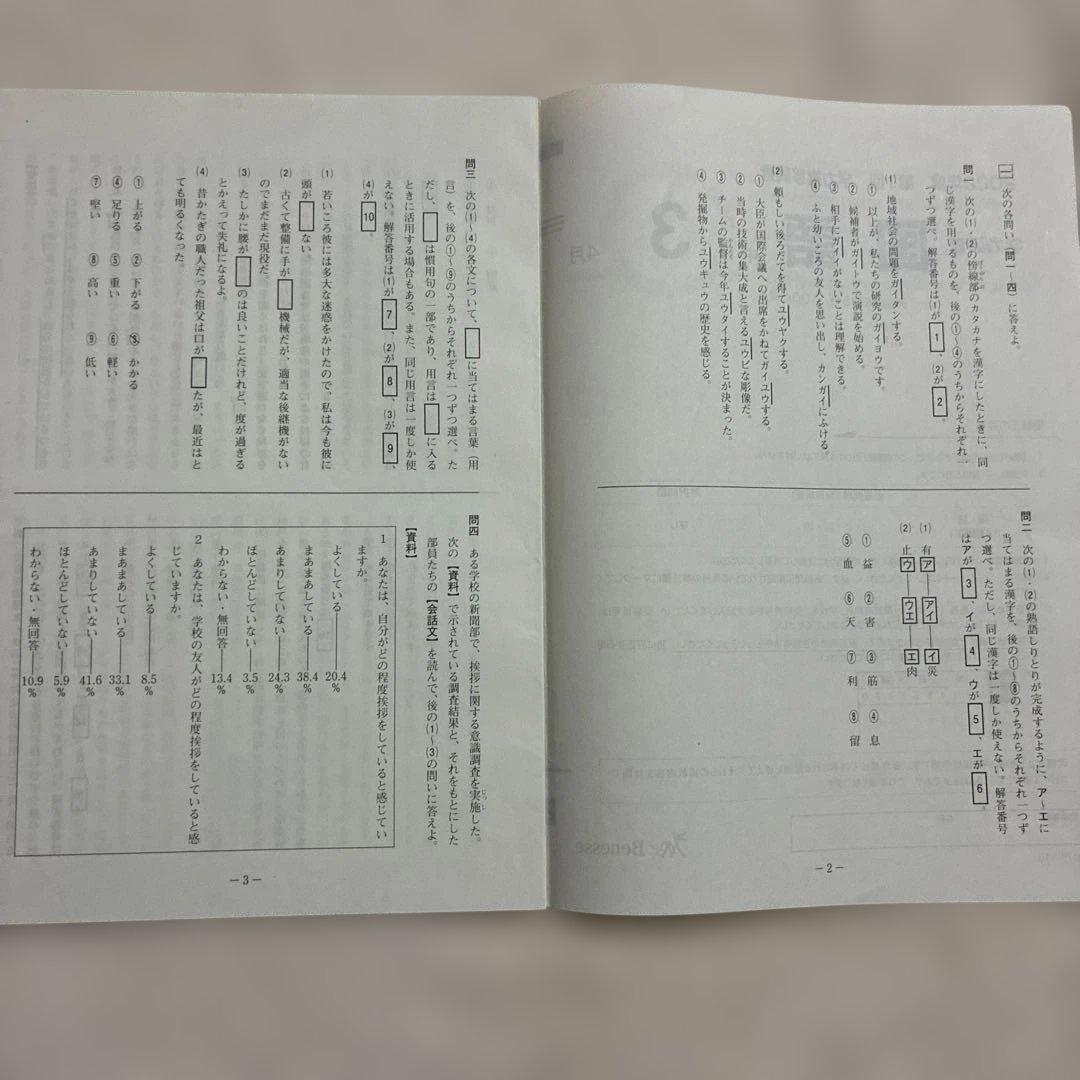 一 次の各問い(問一～四)に答えよ。
問一 次の(1)・(2)の傍線部のカタカナを漢字にしたときに、同
じ漢字を用いるものを、後の①～④のうちからそれぞれ一
つずつ選べ。解答番号は(1)が 1 、(2)が 2 。
(1) 地域社会の問題をガイタンする。
① 以上が、私たちの研究のガイヨウです。
② 候補者がガイトウで演説を始める。
③ 相手にガイイがないことは理解できる。
④ ふと幼いころの友人を思い出し、カンガイにふける。
(2) 頼もしい後ろだてを得てユウヤクする。
① 大臣が国際会議への出席をかねてガイユウする。
② 当時の技術の集大成と言えるユウビな彫像だ。
③ チームの監督は今年ユウタイすることが決まった。
④ 発掘物からユウキュウの歴史を感じる。
問二 次の(1)・(2)の熟語しりとりが完成するように、ア～エに
当てはまる漢字を、後の①～⑧のうちからそれぞれ一つず
つ選べ。ただし、同じ漢字は一度しか使えない。解答番号
はアが 3 、イが 4 、ウが 5 、エが 6 。
(1) 有ア―アイ―イ災
(2) 止ウ―ウエ―エ肉
① 益 ② 害 ③ 筋 ④ 息
⑤ 血 ⑥ 天 ⑦ 利 ⑧ 留
－2－
問三 次の(1)～(4)の各文について、□に当てはまる言葉(用
言)を、後の①～⑨のうちからそれぞれ一つずつ選べ。た
だし、□は慣用句の一部であり、用言は□に入る
ときに活用する場合もある。また、同じ用言は一度しか使
えない。解答番号は(1)が 7 、(2)が 8 、(3)が 9 、
(4)が 10 。
(1) 若いころ彼には多大な迷惑をかけたので、私は今も彼に
頭が□ない。
(2) 古くて整備に手が□機械だが、適当な後継機がない
のでまだまだ現役だ。
(3) たしかに腰が□のは良いことだけれど、度が過ぎる
とかえって失礼になるよ。
(4) 昔かたぎの職人だった祖父は口が□たが、最近はと
ても明るくなった。
① 上がる ② 下がる ③ かかる
④ 足りる ⑤ 重い ⑥ 軽い
⑦ 堅い ⑧ 高い ⑨ 低い
問四 ある学校の新聞部で、挨拶に関する意識調査を実施した。
じっし
次の【資料】で示されている調査結果と、それをもとにした
部員たちの【会話文】を読んで、後の(1)～(3)の問いに答えよ。
【資料】
1 あなたは、自分がどの程度挨拶をしていると感じてい
ますか。
よくしている―――20.4%
まあまあしている―――38.4%
あまりしていない―――24.3%
ほとんどしていない―――3.5%
わからない・無回答―――13.4%
2 あなたは、学校の友人がどの程度挨拶をしていると感
じていますか。
よくしている―――8.5%
まあまあしている―――33.1%
あまりしていない―――41.6%
ほとんどしていない―――5.9%
わからない・無回答―――10.9%
－3－